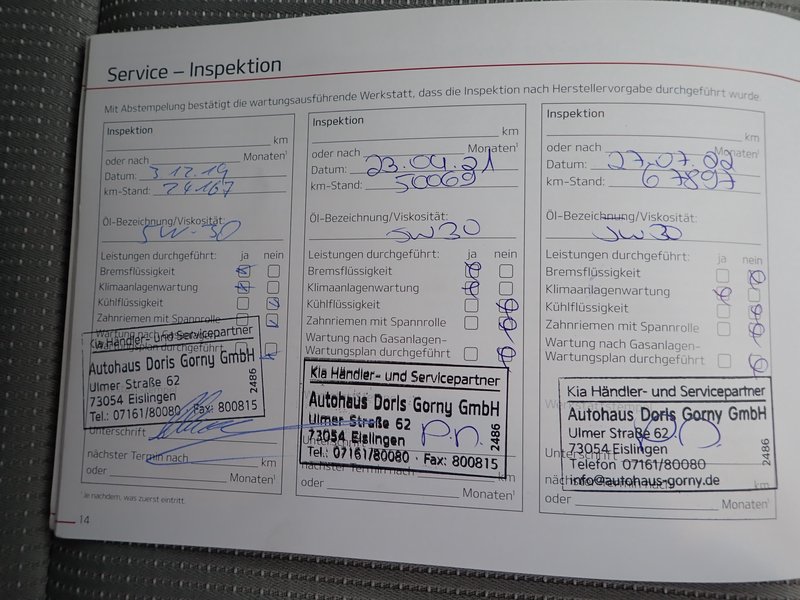 Service – Inspektion
Mit Abstempelung bestätigt die wartungsausführende Werkstatt, dass die Inspektion nach Herstellervorgabe durchgeführt wurde.
Inspektion
km
oder nach Monaten¹
Datum: 3 12.19
km-Stand: 24167
Öl-Bezeichnung/Viskosität:
5W-30
Leistungen durchgeführt: ja nein
Bremsflüssigkeit
Klimaanlagenwartung
Kühlflüssigkeit
Zahnriemen mit Spannrolle
Wartung nach Gasanlagen-
Wartungsplan durchgeführt
Kia Händler- und Servicepartner
Autohaus Doris Gorny GmbH
Ulmer Straße 62
73054 Eislingen
Tel.: 07161/80080 Fax: 800815
2486
Unterschrift
nächster Termin nach km
oder Monaten¹
¹ Je nachdem, was zuerst eintritt.
14
Inspektion
km
oder nach Monaten¹
Datum: 23.04.21
km-Stand: 50069
Öl-Bezeichnung/Viskosität:
5W30
Leistungen durchgeführt: ja nein
Bremsflüssigkeit
Klimaanlagenwartung
Kühlflüssigkeit
Zahnriemen mit Spannrolle
Wartung nach Gasanlagen-
Wartungsplan durchgeführt
Kia Händler- und Servicepartner
Autohaus Doris Gorny GmbH
Ulmer Straße 62
73054 Eislingen
Tel.: 07161/80080 · Fax: 800815
2486
nächster Termin nach km
oder Monaten¹
Inspektion
km
oder nach Monaten¹
Datum: 27.07.22
km-Stand: 67897
Öl-Bezeichnung/Viskosität:
5W30
Leistungen durchgeführt: ja nein
Bremsflüssigkeit
Klimaanlagenwartung
Kühlflüssigkeit
Zahnriemen mit Spannrolle
Wartung nach Gasanlagen-
Wartungsplan durchgeführt
Kia Händler- und Servicepartner
Autohaus Doris Gorny GmbH
Ulmer Straße 62
73054 Eislingen
Telefon 07161/80080
info@autohaus-gorny.de
2486
Unterschrift
nächster Termin nach km
oder Monaten¹